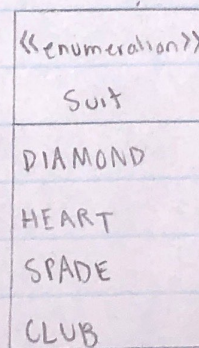 <<enumeration>>
Suit
DIAMOND
HEART
SPADE
CLUB